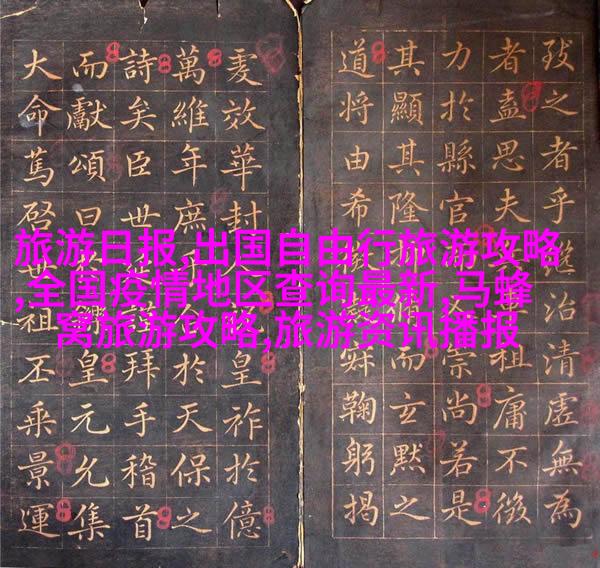 之者乎继治清虛無為
者盍思夫祖庸不徵
力於縣官又崇尚若是
其顯其隆而玄默之
道將由希鞠躬揭
爰效華封人皇祚於億
萬維年庶合於天保
詩矣臣世延謹拜手稽首
而獻頌曰鑠皇元允集
大命篤啓世祖丕乘景運
旅游日报,出国自由行旅游攻略
,全国疫情地区查询最新,马蜂
窝旅游攻略,旅游资讯播报